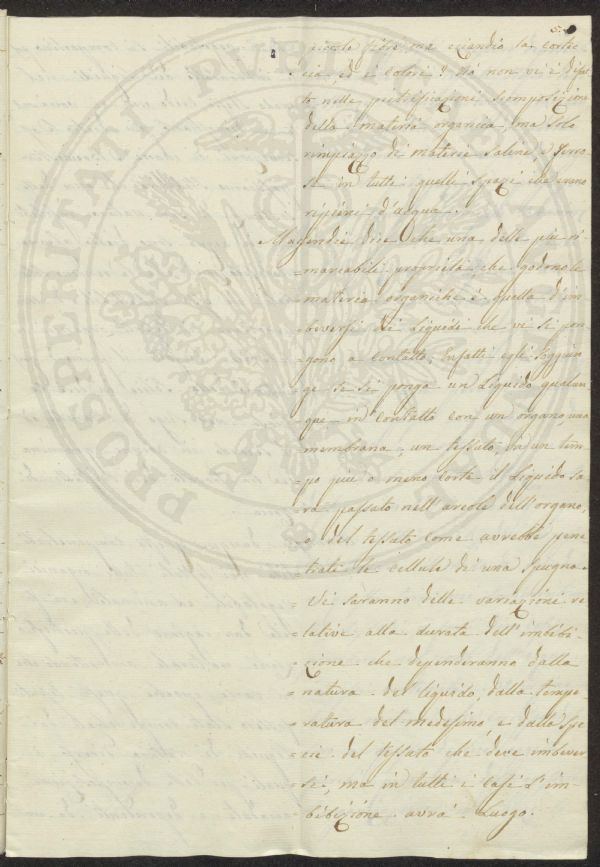 piccole fibre ma eziandio la cortec
cia, ed i colori? Nò non vi è difat
to nelle petrificazioni scomposizione
della materia organica, ma solo
rimpiazzo di materie saline e terro
se in tutti quelli spazi che erano
ripieni d'acqua.
Magendie dice che una delle più ri
=marcabili proprietà che godono le
=materie organiche è quella d'im
=beversi dei liquidi che vi si pon
=gono a contatto. Infatti egli soggiun
=ge se si ponga un liquido qualun
=que in contatto con un organo una
=membrana, un tessuto, in un tem
=po più o meno corto il liquido sa
=rà passato nell'areole dell'organo,
=o del tessuto come avrebbe pene
=trati le cellule di una spugna.
=Vi saranno delle variazioni re
=lative alla durata dell'imbibi
=zione che dependeranno dalla
=natura del liquido, dalla tempe
=ratura del medesimo, e dalla spe
=cie del tessuto che deve imbever
=si, ma in tutti i casi l'im
=bibizione avrà luogo.
PROSPERITATI PUBLICAE